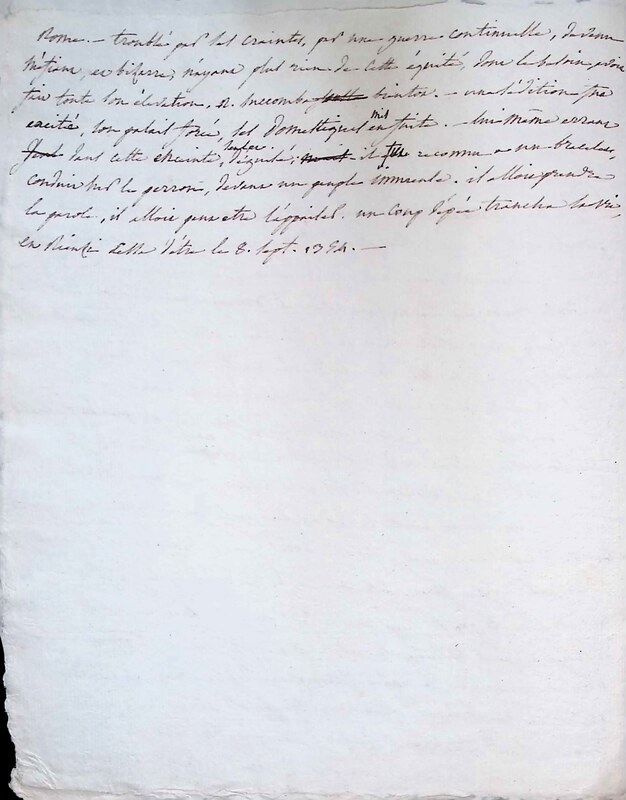 Rome. — troublé par les craintes, par une guerre continuelle, devenu
méfiant, et bizarre, n'ayant plus rien de cette équité, dont le besoin avoit
fait toute son élévation, R. succomba bientôt. — une sédition fut
excitée, son palais forcé, ses domestiques mis en fuite. — lui même errant
dans cette enceinte, déguisé, il fut reconnu a un bracelet,
conduit sur le perron, devant un peuple immense. il alloit prendre
la parole, il alloit peut etre l'appaiser. un coup d'épée trancha sa vie,
et Rienzi cessa d'être le 8. sept. 1354. —